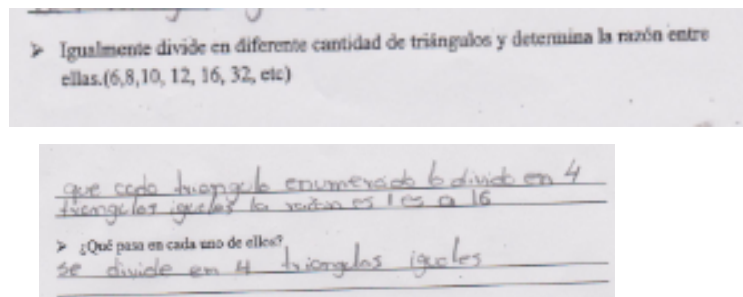 ➢ Igualmente divide en diferente cantidad de triángulos y determina la razón entre
ellas.(6,8,10, 12, 16, 32, etc)
que cada triangulo enumerado lo divido en 4
triangulos iguales la razon es 1 es a 16
➢ ¿Qué pasa en cada uno de ellos?
se divide en 4 triangulos iguales